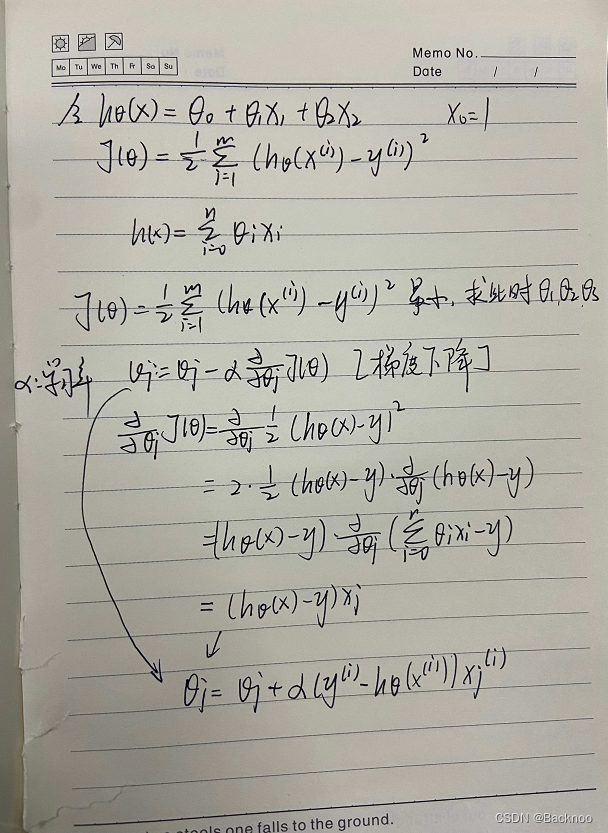 Memo No.
Mo Tu We Th Fr Sa Su
Date / /
令 hθ(x) = θ₀ + θ₁x₁ + θ₂x₂ x₀=1
J(θ) = 1/2 Σ_{i=1}^{m} (hθ(x⁽ⁱ⁾) - y⁽ⁱ⁾)²
h(x) = Σ_{i=0}^{n} θᵢxᵢ
J(θ) = 1/2 Σ_{i=1}^{m} (hθ(x⁽ⁱ⁾) - y⁽ⁱ⁾)² 最小, 求此时 θ₁,θ₂,θ₃
α:学习率 θj := θj - α ∂/∂θj J(θ) [梯度下降]
∂/∂θj J(θ) = ∂/∂θj 1/2 (hθ(x)-y)²
= 2·1/2 (hθ(x)-y)·∂/∂θj (hθ(x)-y)
=(hθ(x)-y)·∂/∂θj (Σ_{i=0}^{n} θᵢxᵢ-y)
= (hθ(x)-y)xj
θj = θj + α(y⁽ⁱ⁾-hθ(x⁽ⁱ⁾))xj⁽ⁱ⁾
stools one falls to the ground.
CSDN @Backnoo